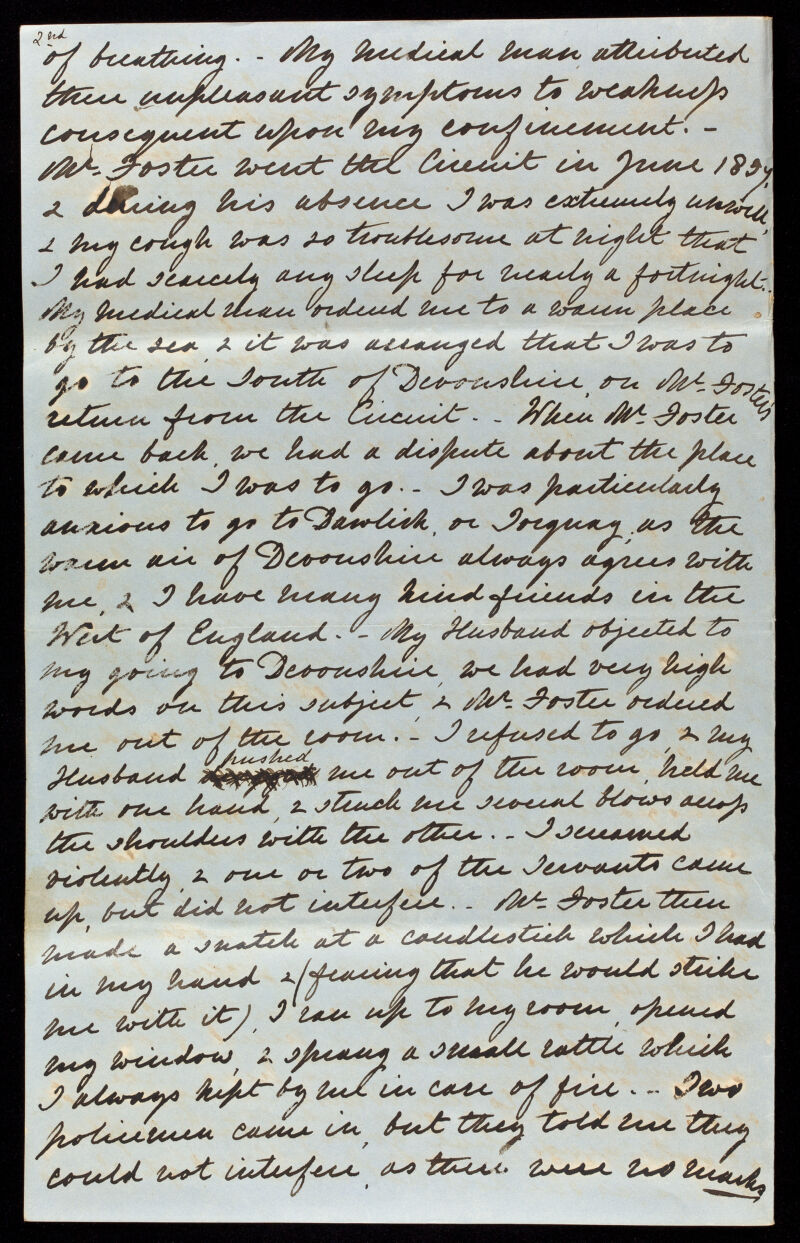 2nd
of breathing. - My medical man attributed
these unpleasant symptoms to weakness
consequent upon my confinement. -
Mr. Foster went the Circuit in June 1857,
& during his absence I was extremely unwell,
& my cough was so troublesome at night that
I had scarcely any sleep for nearly a fortnight. -
My medical man ordered me to a warm place
by the sea & it was arranged that I was to
go to the South of Devonshire, on Mr. Foster's
return from the Circuit. - When Mr. Foster
came back, we had a dispute about the place
to which I was to go. - I was particularly
anxious to go to Dawlish, or Torquay, as the
warm air of Devonshire always agrees with
me, & I have many kind friends in the
West of England. - My Husband objected to
my going to Devonshire, we had very high
words on this subject, & Mr. Foster ordered
me out of the room. - I refused to go, & my
Husband pushed me out of the room, held me
with one hand, & struck me several blows across
the shoulders with the other. - I screamed
violently, & one or two of the Servants came
up, but did not interfere. - Mr. Foster then
made a snatch at a candlestick which I had
in my hand & (fearing that he would strike
me with it), I ran up to my room, opened
my window, & sprang a small rattle which
I always kept by me in case of fire. - Two
policemen came in, but they told me they
could not interfere, as there were no marks,